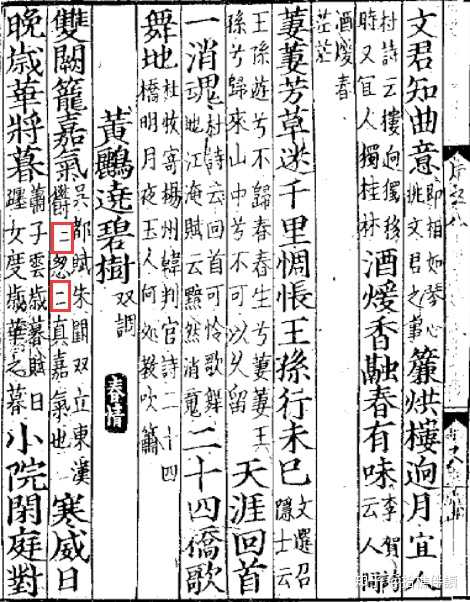 文君知曲意即相如琴心挑文君之事簾烘樓迥月宜人
杜詩云樓迥獨移時又宜人獨桂林酒煖香融春有味李賀云人耶
酒煖春茫茫
萋萋芳草迷千里惆悵王孫行未已文選招隱士云
王孫遊兮不歸春春生兮萋萋王孫兮歸來山中兮不可以久留天涯回首
一消魂杜詩云回首可憐歌舞地江淹賦云黯然消魂二十四橋歌
舞地杜牧寄楊州韓判官詩二十四橋明月夜玉人何処教吹簫
黃鸝遶碧樹双調 春情
雙闕籠嘉氣吳都賦朱闕双立東漢欝〻葱〻真嘉氣也寒威日
晚歲華將暮蕭子雲歲暮賦日躔女度歲華之暮小院閑庭對